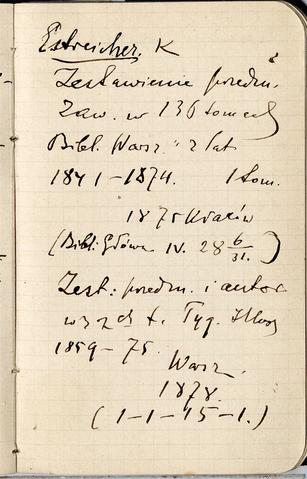 Estreicher. K
Zestawienie przedm.
zaw. w 136 tomach
Bibl. Warsz. z lat
1841-1874. 1 tom.
1875 Kraków
(Bibl. Główna IV. 28 6/31.)
Zest. przedm. i autor.
w 32 ch t. Tyg. Illus
1859-75.
Warsz.
1878.
(1-1-15-1.)